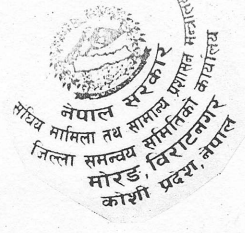 नेपाल सरकार
सघिय मामिला तथ सामान्य प्रशासन मन्त्रालय
जिल्ला समन्वय समितिको कार्यालय
मोरङ, विराटनगर
कोशी प्रदेश, नेपाल